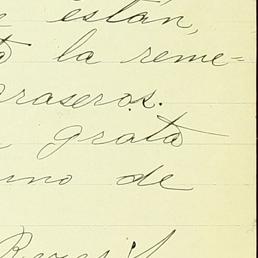 están,
la reme=
raseros.
grata
ino de